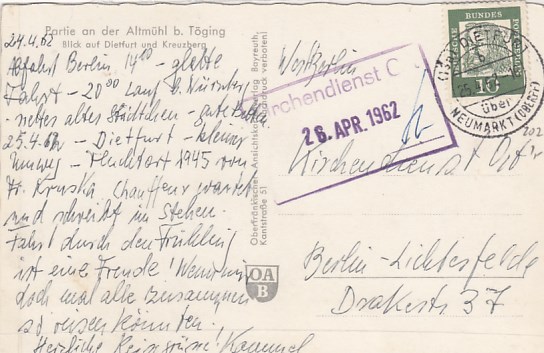 Partie an der Altmühl b. Töging
Blick auf Dietfurt und Kreuzberg
24.4.62
Abfahrt Berlin 14⁰⁰ - glatte
Fahrt - 20⁰⁰ Lauf b. Nürnberg
- nettes altes Städtchen - gute
25.4. - Dietfurt - kleiner
Umweg - Fluchtort 1945 von
Fr. Kruska. Chauffeur wartet
und schreibt im Stehen.
Fahrt durch den Frühling
ist eine Freude! Wenn wir
doch mal alle zusammen
so reisen könnten!
Herzliche Reisegrüße!
Oberfränkisches Ansichtskartenverlag Bayreuth,
Kantstraße 51
verboten)
OA
B
Westberlin
Kirchendienst O
26. APR. 1962
Kirchendienst Ost
Berlin-Lichterfelde
Drakestr 37
DEUTSCHE BUNDESPOST
10
DIETFURT
25.
über
NEUMARKT (OBERPF)